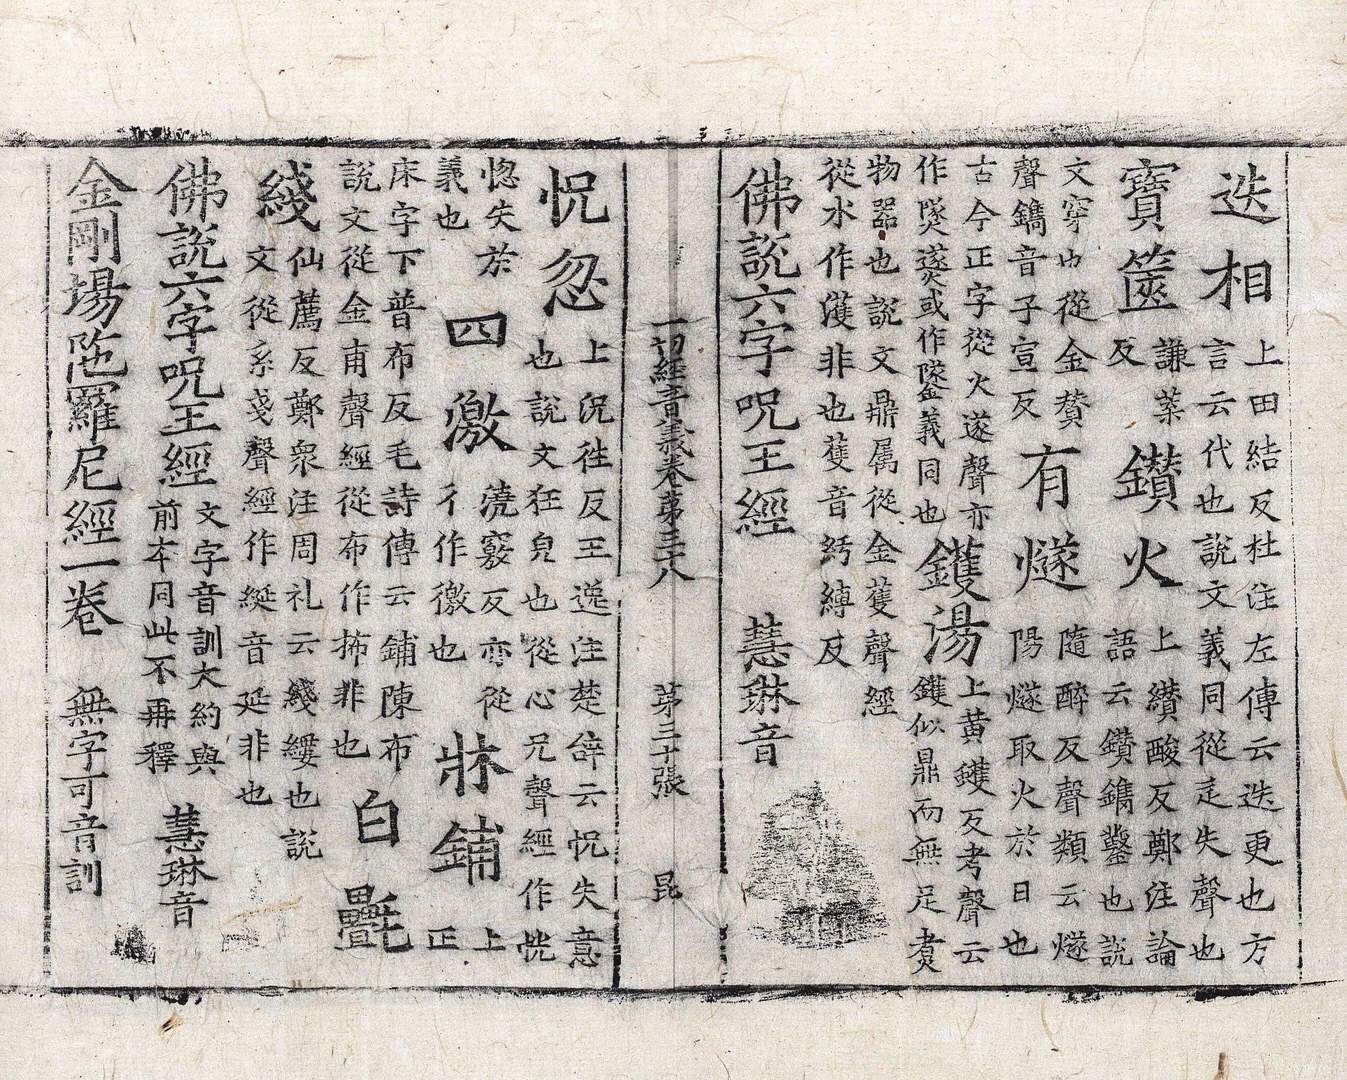 迭相 上田結反杜注左傳云迭更也方言云代也說文義同從辵失聲也
寶篋 謙葉反 鑽火 上纘酸反鄭注論語云鑽鐫鑿也說
文穿也從金贊聲鐫音子宣反 有燧 隨醉反聲類云燧陽燧取火於日也
古今正字從火遂聲亦作㷂或作鐆義同也 鑊湯 上黃鑊反考聲云鑊似鼎而無足煑
物器也說文鼎属從金蒦聲經從水作濩非也蒦音紆縛反
佛說六字呪王經 慧琳音
一切經音義卷第三十八 第三十張 昆
怳忽 上況往反王逸注楚辝云怳失意也說文狂皃也從心兄聲經作恍
惚失於義也 四激 澆竅反亦從彳作徼也 牀鋪 上正
床字下普布反毛詩傳云鋪陳布說文從金甫聲經從布作抪非也 白㲲
綫 仙薦反鄭衆注周礼云綫縷也說文從系戔聲經作綖音延非也
佛說六字呪王經 文字音訓大約與前本同此不再釋 慧琳音
金剛場陁羅尼經一卷 無字可音訓